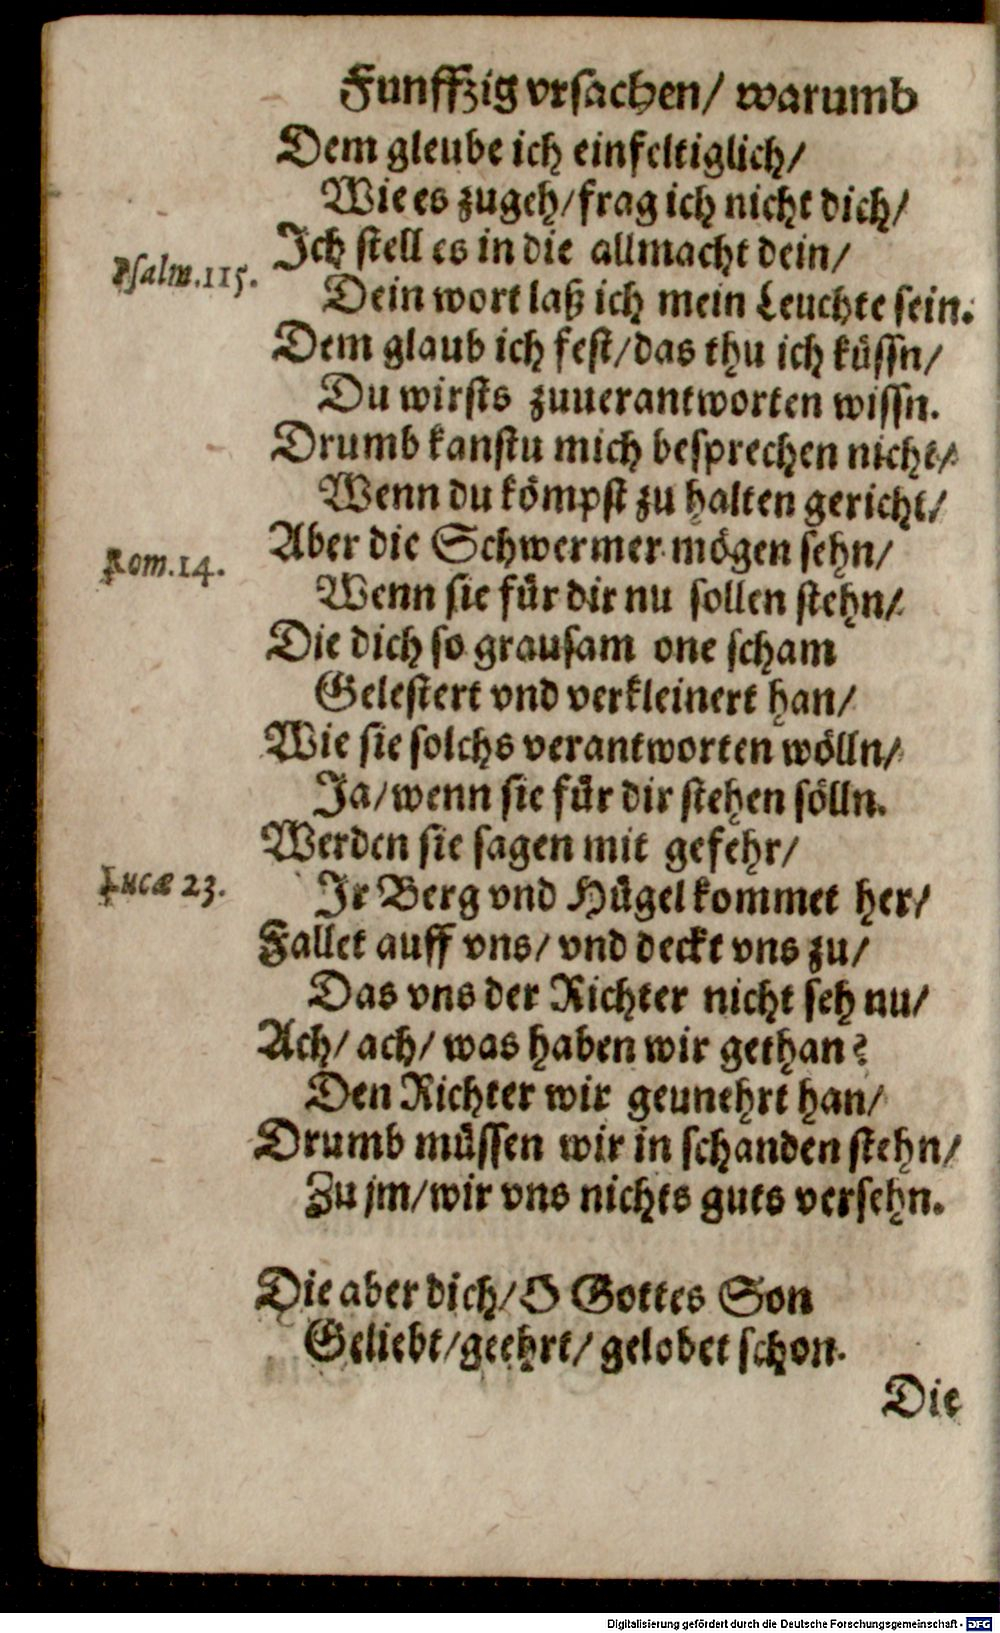 Funffzig vrsachen/ warumb
Dem gleube ich einfeltiglich/
Wie es zugeh/frag ich nicht dich/
Ich stell es in die allmacht dein/
Psalm.115.
Dein wort laß ich mein Leuchte sein.
Dem glaub ich fest/das thu ich küssn/
Du wirsts zuuerantworten wissn.
Drumb kanstu mich besprechen nicht/
Wenn du kömpst zu halten gericht/
Aber die Schwermer mögen sehn/
Rom.14.
Wenn sie für dir nu sollen stehn/
Die dich so grausam one scham
Gelestert vnd verkleinert han/
Wie sie solchs verantworten wölln/
Ja/wenn sie für dir stehen sölln.
Werden sie sagen mit gefehr/
Lucæ 23.
Ir Berg vnd Hügel kommet her/
Fallet auff vns/ vnd deckt vns zu/
Das vns der Richter nicht seh nu/
Ach/ ach/ was haben wir gethan?
Den Richter wir geunehrt han/
Drumb müssen wir in schanden stehn/
Zu jm/wir vns nichts guts versehn.
Die aber dich/ O Gottes Son
Geliebt/geehrt/ gelobet schon.
Die
Digitalisierung gefördert durch die Deutsche Forschungsgemeinschaft - DFG